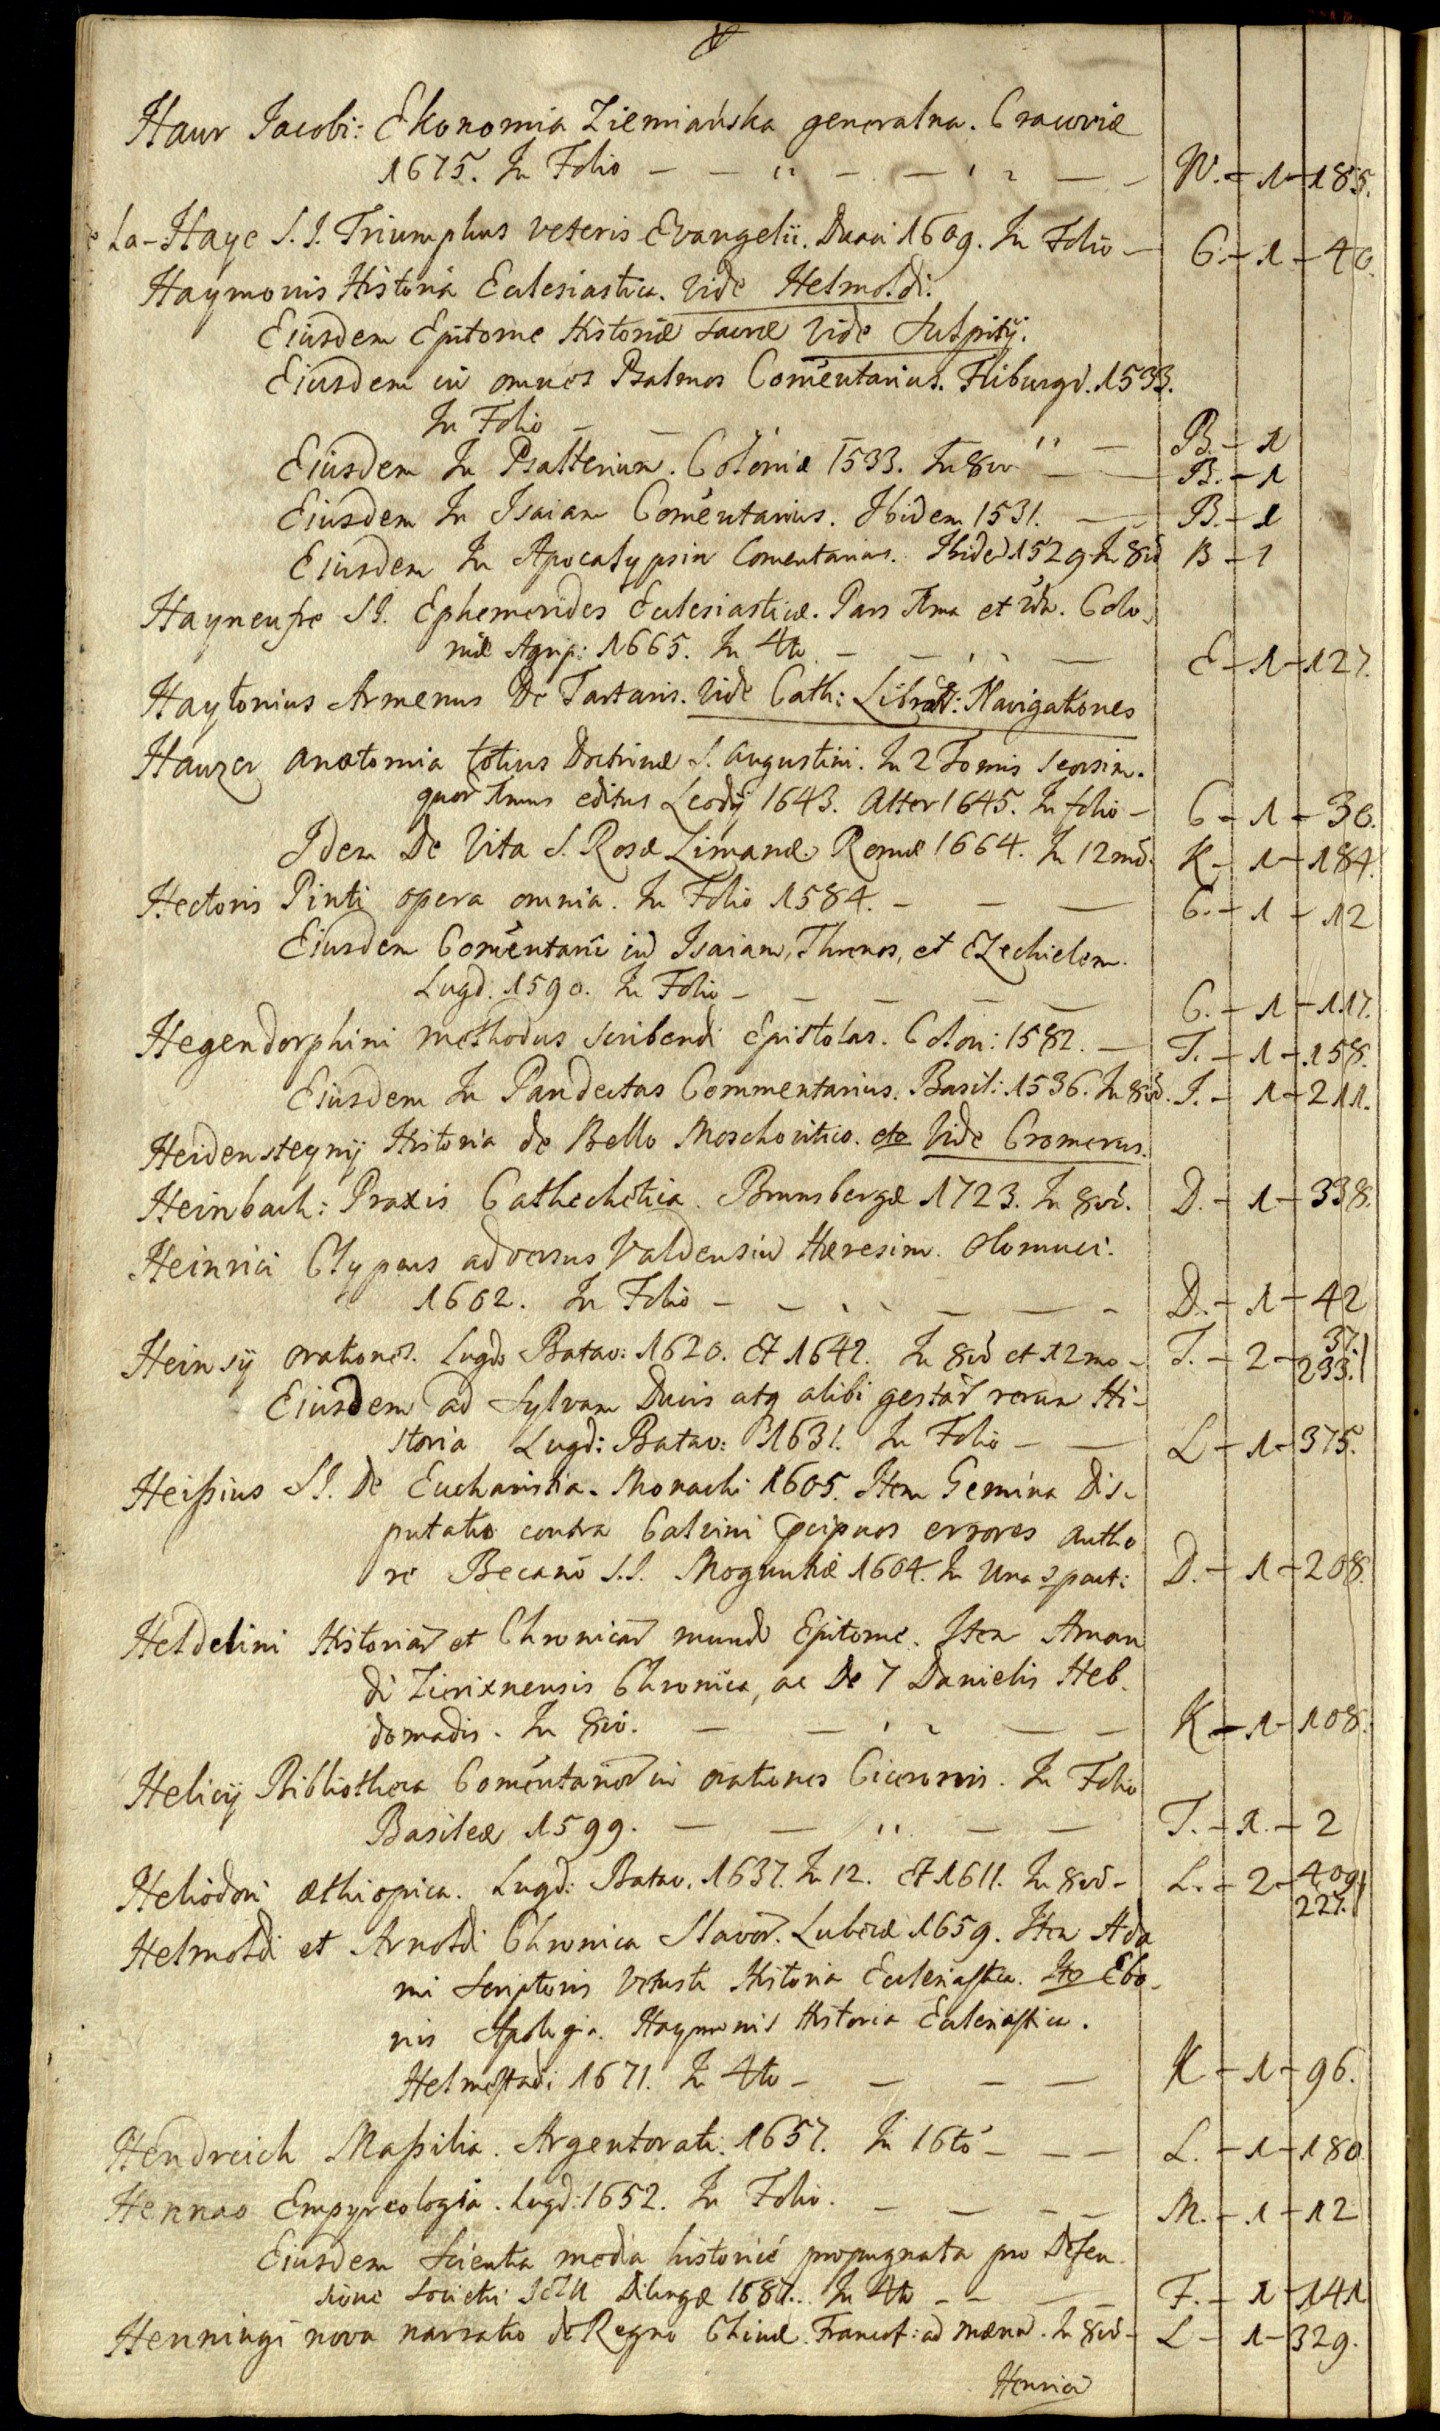 Haur Jacobi: Ekonomia Ziemiańska generalna. Cracoviæ
1675. In Folio — — — — — — W. - 1 - 185.
La-Haye S.I. Triumphus veteris Evangelii. Duaci 1609. In Folio — C. - 1 - 40.
Haymonis Historia Eclesiastica. Vide Helmoldi.
Eiusdem Epitome Historiæ sacræ Vide Sulpitij.
Eiusdem in omnes Psalmos Com̃entarius. Friburgi. 1533.
In Folio — — — B. - 1
Eiusdem In Psalterium. Coloniæ 1533. In 8vo — — B. - 1
Eiusdem In Isaiam Com̃entarius. Ibidem 1531. — B. - 1
Eiusdem In Apocalypsin Comentarius. Ibidē 1529 In 8vo B - 1
Hayneufve S.I. Ephemerides Eclesiasticæ. Pars 1ma et 2da. Colo-
niæ Agrip: 1665. In 4to — — — E - 1 - 127.
Haytonius Armenus De Tartaris. Vide Cath: Libror: Navigationes
Hauzer anatomia totius Doctrinæ S. Augustini. In 2 Tomis seorsim.
quor 1mus editus Leodij 1643. Alter 1645. In folio — C - 1 - 30.
Idem De Vita S. Rosæ Limanæ. Romæ 1664. In 12mo. K - 1 - 184.
Hectoris Pinti opera omnia. In Folio 1584. — — — C. - 1 - 12
Eiusdem Com̃entarii in Isaiam, Threnos, et Ezechielem.
Lugd: 1590. In Folio — — — — — C. - 1 - 117.
Hegendorphini methodus scribendi Epistolas. Colon: 1582. — T. - 1 - 158.
Eiusdem In Pandectas Commentarius. Basil: 1536. In 8vo. I. - 1 - 211.
Heidensteynij Historia de Bello Moschovitico. etc Vide Cromerus.
Heinbach: Praxis Cathechetica. Brunsbergæ 1723. In 8vo. D. - 1 - 338.
Heinrici Clypeus adversus Valdensiū Hæresim. Olomuci.
1602. In Folio — — — — — D. - 1 - 42
Heinsij orationes. Lugd: Batav: 1620. Et 1642. In 8vo et 12mo — T. - 2 - 37.
233.
Eiusdem ad Sylvam Ducis atq alibi gestar rerum Hi-
storia Lugd: Batav: 1631. In Folio — — L - 1 - 375.
Heißius S.I. De Eucharistia. Monachi 1605. Item Gemina Dis-
putatio contra Calvini pcipuos errores autho
re Becano S.I. Moguntiæ 1604. In Una spact: D. - 1 - 208.
Heldelini Historiar et Chronicar mundi Epitome. Item Aman
di Zierixnensis Chronica, ac De 7 Danielis Heb-
domadis. In 8vo. — — — — K - 1 - 108.
Helicij Bibliotheca Com̃entarior in orationes Ciceronis. In Folio
Basileæ 1599. — — — — — T. - 1. - 2
Heliodori æthiopica. Lugd: Batav. 1637. In 12. Et 1611. In 8vo — L. - 2 - 409.
227.
Helmoldi et Arnoldi Chronica Slavor. Lubecæ 1659. Item Ada
mi Scriptoris Vetusti Historia Eclesiastica. Ite Ebo-
nis Apologia. Haymonis Historia Eclesiastica.
Helmestadi 1671. In 4to — — — — K - 1 - 96.
Hendreich Maßilia. Argentorati: 1657. In 16to — — — L. - 1 - 180
Hennao Empyreologia. Lugd: 1652. In Folio. — — — M. - 1 - 12
Eiusdem Scientia media historice propugnata pro Defen-
sione Societi: Dilingæ 1687. In 4to — — — F. - 1 - 141
Henningi nova narratio de Regno Chinæ. Francof: ad mænū. In 8vo — L - 1 - 329.
Henrici